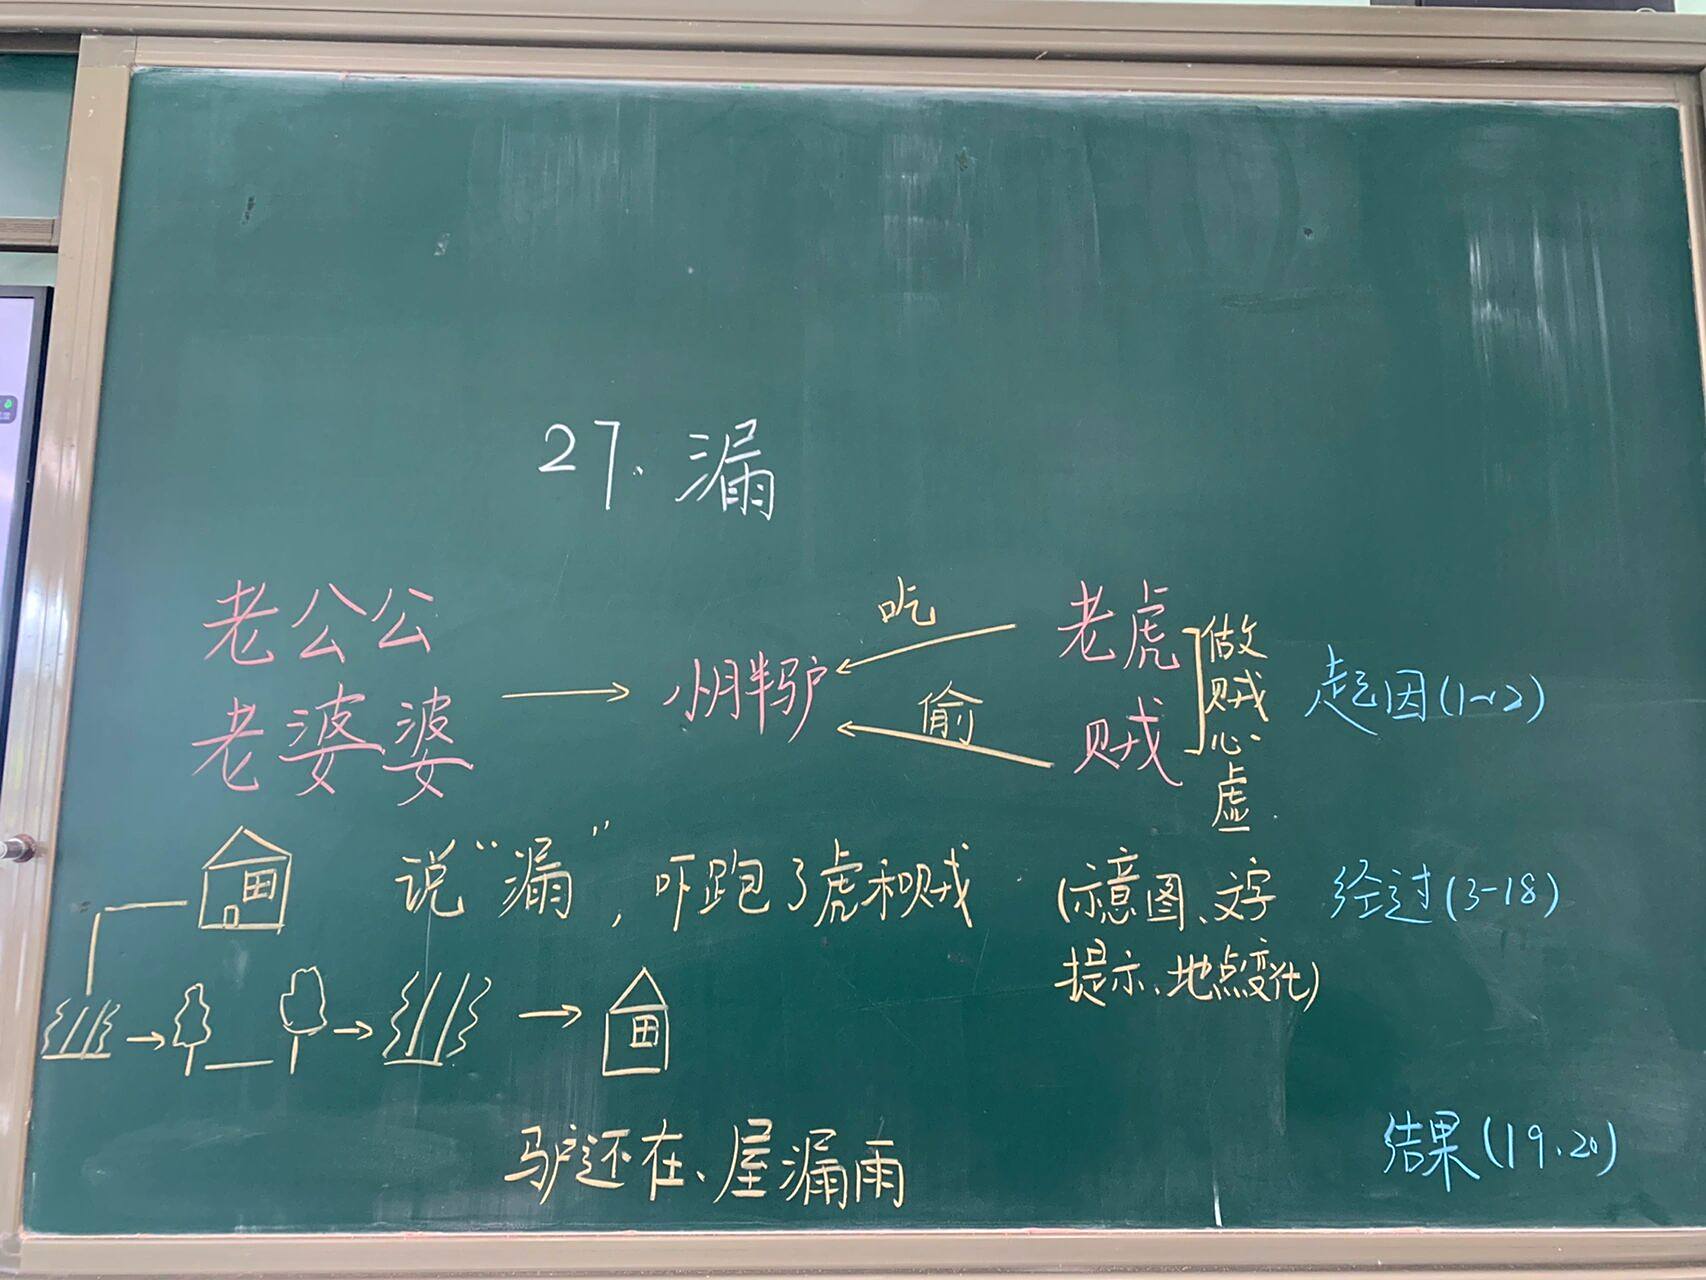 27. 漏
老公公
老婆婆
小胖驴
吃
偷
老虎
贼
做贼心虚
起因(1~2)
说“漏”，吓跑了虎和贼
(示意图、文字
提示、地点变化)
经过(3-18)
驴还在、屋漏雨
结果(19、20)